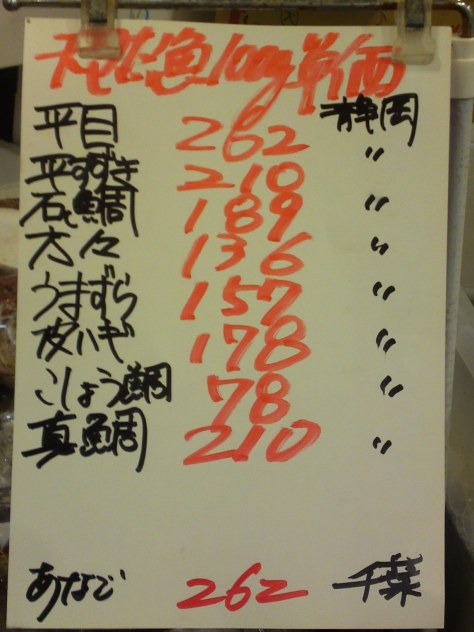 魚100g単価
平目 262 静岡
平すずき 210 〃
石鯛 189 〃
方々 136 〃
うまずら 157 〃
皮はぎ 178 〃
こしょう鯛 78 〃
真鯛 210 〃
あなご 262 千葉